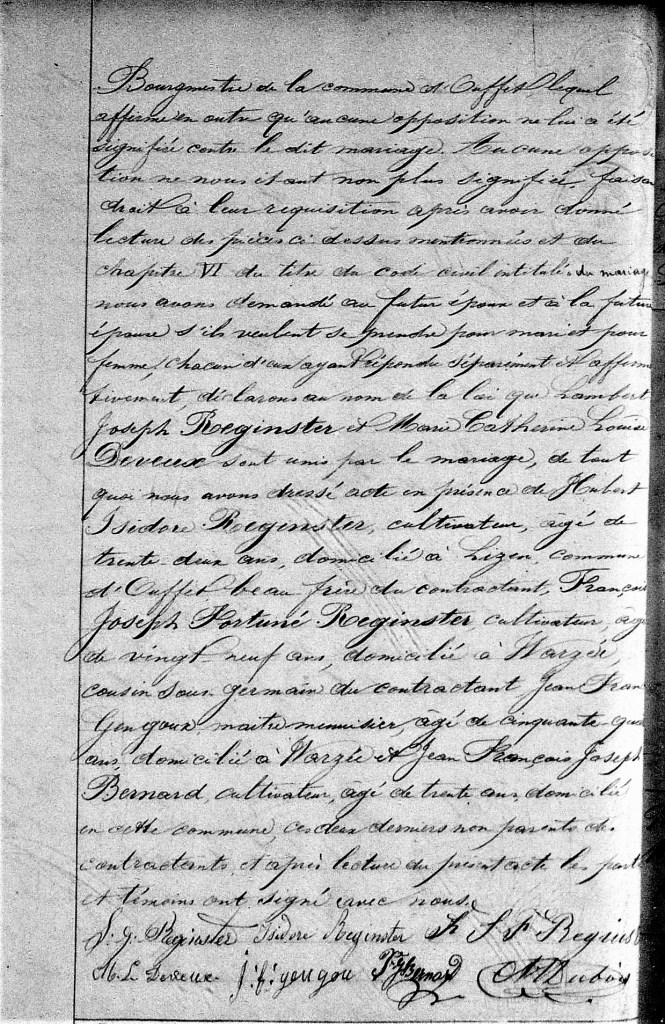 Bourgmestre de la commune d'Ouffet, lequel
affirme en outre qu'aucune opposition ne lui a été
signifiée contre le dit mariage. Aucune oppo
tion ne nous étant non plus signifiée, faisan
droit à leur requisition après avoir donné
lecture des pièces ci-dessus mentionnées et du
chapitre VI du titre du code civil intitulé "du mariage
nous avons demandé au futur époux et à la future
épouse s'ils veulent se prendre pour mari et pour
femme, chacun d'eux ayant répondu séparément et affirma
tivement, déclarons au nom de la loi que Lambert
Joseph Reginster et Marie Catherine Louise
Deveux sont unis par le mariage, de tout
quoi nous avons dressé acte en présence de Hubert
Isidore Reginster, cultivateur, âgé de
trente-deux ans, domicilié à Lizen, commune
d'Ouffet beau frère du contractant, François
Joseph Fortuné Reginster cultivateur, âgé
de vingt-neuf ans, domicilié à Warzée,
cousin sous-germain du contractant Jean Fran
Gengoux, maître menuisier, âgé de cinquante-qua
ans, domicilié à Warzée et Jean François Joseph
Bernard, cultivateur, âgé de trente ans, domicilié
en cette commune, ces deux derniers non parents des
contractants, et après lecture du présent acte les parti
et témoins ont signé avec nous.
L. J. Reginster Isidore Reginster F Reginst
M. L. Deveux j. f. gengou Bernard Dubois